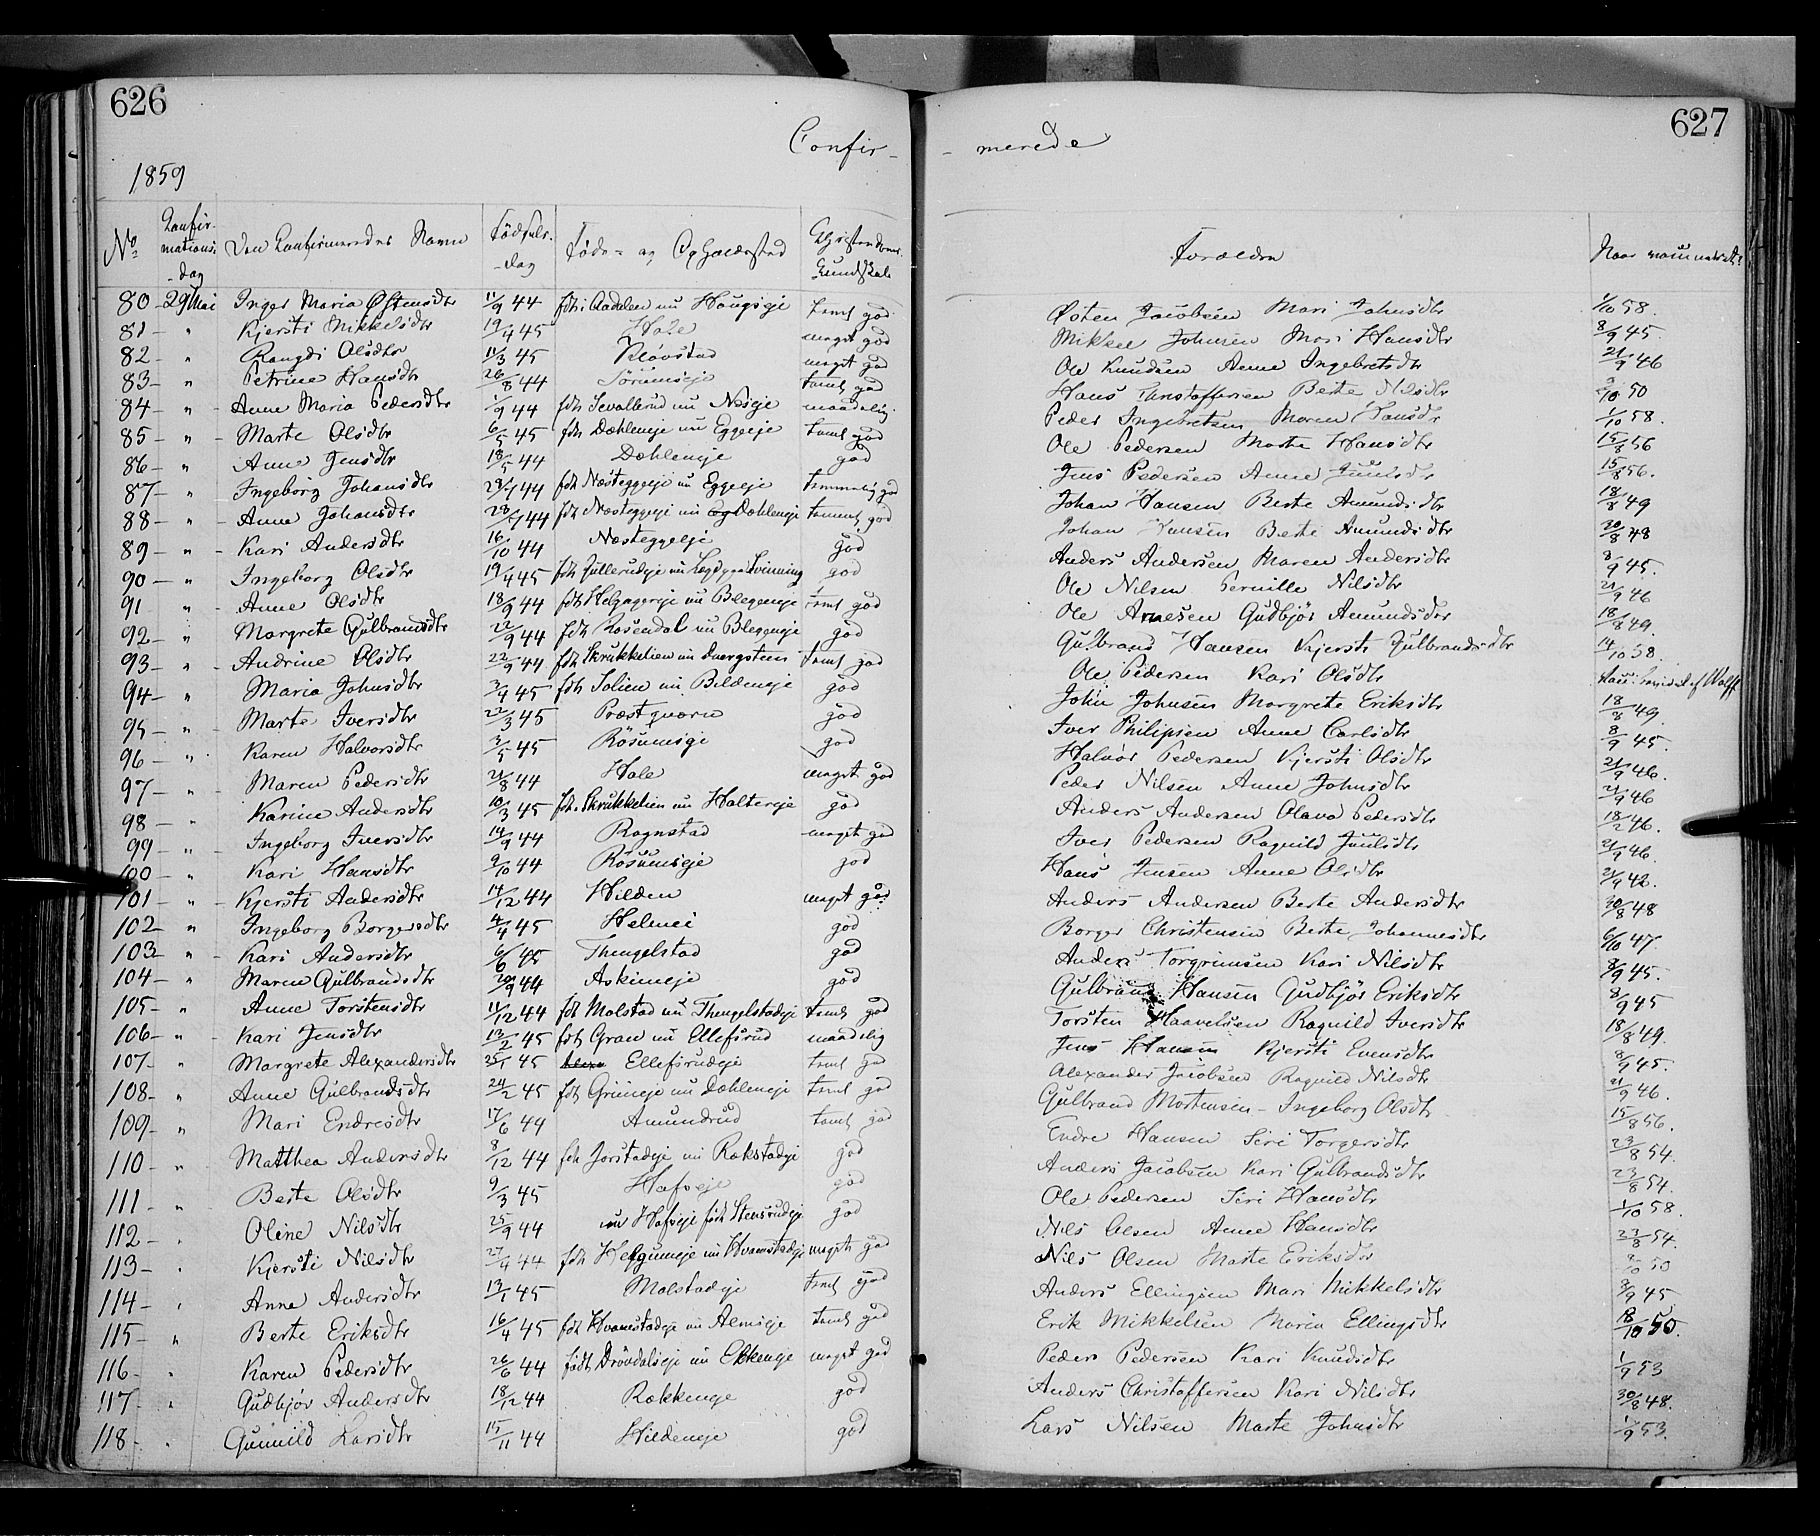 626
627
Confir-
- merede
1859
No
Confir-
mations-
dag
Den Confirmeredes Navn
Fødsels-
dag
Føde- og Opholdssted
Christendoms
Kundskab
Forældre
Naar vaccineret?
80 - 29 Mai Inger Maria Østensdtr 11/9 44 fdt i Aadalen nu Haugseje temt god Østen Jacobsen Mari Johnsdtr 1/10 58.
81 - " Kjersti Mikkelsdtr 19/4 45 Hole meget god Mikkel Johnsen Mari Hansdtr 8/9 45.
82 - " Rangdi Olsdtr 11/3 45 Kløvstad meget god Ole Knudsen Anne Ingebretsdtr 21/9 46
83 - " Petrine Hansdtr 26/8 44 Sørumseje temt god Hans Christoffersen Berte Nilsdtr 9/10 50
84 - " Anne Maria Pedersdtr 1/9 44 fdt Sevallerud nu Næseje maadelig Peder Ingebretsen Maren Hansdr 1/10 58.
85 - " Marte Olsdtr 6/5 45 fdt Dæhleneje nu Eggeeje temt god Ole Pedersen Marte Hansdtr 15/8 56
86 - " Anne Jensdtr 18/5 44 Dæhleneje god Jens Pedersen Anne Juulsdtr 15/8 56.
87 - " Ingeborg Johansdtr 28/7 44 fdt Næsteggeje nu Eggeeje temmelig god Johan Hansen Berte Amundsdtr 18/8 49
88 - " Anne Johansdtr 28/7 44 fdt Næsteggeje nu Dæhleneje temmt god Johan Hansen Berte Amundsdtr 30/8 48
89 - " Kari Andersdtr 16/10 44 Næsteggeje god Anders Andersen Maren Andersdtr 8/9 45.
90 - " Ingeborg Olsdtr 19/4 45 fdt Gullerudeje nu Lægd paa Tvinning god Ole Nilsen Pernille Nilsdtr 21/9 46
91 " Anne Olsdtr 18/9 44 fdt Helgagereje nu Blegeneje temt god Ole Arnesen Gudbjør Amundsdtr 18/8 49.
92 - " Margrete Gulbrandsdtr 22/9 44 fdt Rosendal nu Blegeneje god Gulbrand Hansen Kjersti Gulbrandsdtr 14/10 58.
93 - " Andrine Olsdtr 22/9 44 fdt Skrukkelien nu Dvergsteen temt god Ole Pedersen Kari Olsdtr af Wolff
94 - " Maria Johnsdtr 3/4 45 fdt Solien nu Bildeneje god John Johnsen Margrete Eriksdtr 18/8 49.
95 - " Marte Iversdtr 22/3 45 Præstqværn god Iver Philipsen Anne Carlsdtr 8/9 45.
96 - " Karen Halvorsdtr 3/5 45 Røsumseje god Halvor Pedersen Kjersti Olsdtr 21/9 46.
97 - " Maren Pedersdtr 21/8 44 Hole meget god Peder Nilsen Anne Johnsdtr 21/9 46
98 - " Karine Andersdtr 10/3 45 fdt Skrukkelien nu Haltereje god Anders Andersen Olava Pedersdtr 18/2 46.
99 - " Ingeborg Iversdtr 14/9 44 Rognstad meget god Iver Pedersen Ragnild Juulsdtr 21/9 46.
100 - " Kari Hansdtr 9/10 44 Røsumseje god Hans Jensen Anne Olsdtr 21/9 42.
101 - " Kjersti Andersdtr 14/12 44 Hilden meget god Anders Andersen Berte Andersdtr 30/8 48
102 - " Ingeborg Borgersdtr 4/4 45 Helmei god Borger Christensen Berte Johannesdtr 6/10 47.
103 - " Kari Andersdtr 6/6 45 Thengelstad god Anders Torgrimsen Kari Nilsdtr 8/9 45.
104 - " Maren Gulbrandsdtr 20/9 44 Askimeje god Gulbrand Hansen Gudbjør Eriksdtr 8/9 45
105 - " Anne Torstensdtr 11/12 44 fdt Molstad nu Thengelstadeje temt god Torsten Haavelsen Ragnild Iversdtr 18/8 49.
106 - " Kari Jensdtr 13/2 45 fdt Gran nu Ellefsrud maadelig Jens Hansen Kjersti Evensdtr 8/9 45.
107 - " Margrete Alexandersdtr 25/1 45 Ellefsrudeje temt god Alexander Jacobsen Ragnild Nilsdtr 21/9 46.
108 - " Anne Gulbrandsdtr 24/2 45 fdt Grineje nu Dæhleneje temt god Gulbrand Mortensen - Ingeborg Olsdtr 15/8 56.
109 - " Mari Endresdtr 17/6 44 Amundrud temt god Endre Hansen Siri Torgersdtr 23/8 54.
110 - " Matthea Andersdtr 8/12 44 fdt Jorstadeje nu Rækstadeje god Anders Jacobsen Kari Gulbrandsdtr 23/8 54.
111 - " Berte Olsdtr 9/3 45 Hofseje god Ole Pedersen Siri Hansdtr 1/10 58.
112 - " Oline Nilsdtr 25/9 44 nu Hofseje født Stensrudeje god Nils Olsen Anne Hansdtr 23/8 54.
113 - " Kjersti Nilsdtr 27/4 44 fdt Helgumeje nu Hvamstadeje meget god Nils Olsen Marte Eriksdtr 9/10 50
114 - " Anne Andersdtr 13/1 45 Molstadeje temt god Anders Ellingsen Mari Mikkelsdtr 8/9 45
115 - " Berte Eriksdtr 16/4 45 fdt Hvamstadeje nu Almseje temt god Erik Mikkelsen Maria Ellingsdtr 18/10 50.
116 - " Karen Pedersdtr 26/6 44 født Drøvdalseje nu Ekkeneje meget god Peder Pedersen Kari Knudsdtr 1/9 53
117 - " Gudbjør Andersdtr 18/12 44 Rækkenge god Anders Christoffersen Kari Nilsdtr 30/8 48.
118 - " Gunnild Larsdtr 15/11 44 Hildeneje god Lars Nilsen Marte Johnsdtr 1/9 53.